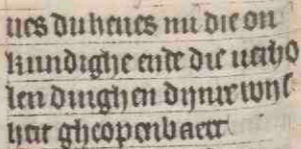 nes du heues mi die on
kundighe ende die uerho
len dinghen dijnre wijs
heit gheopenbaert